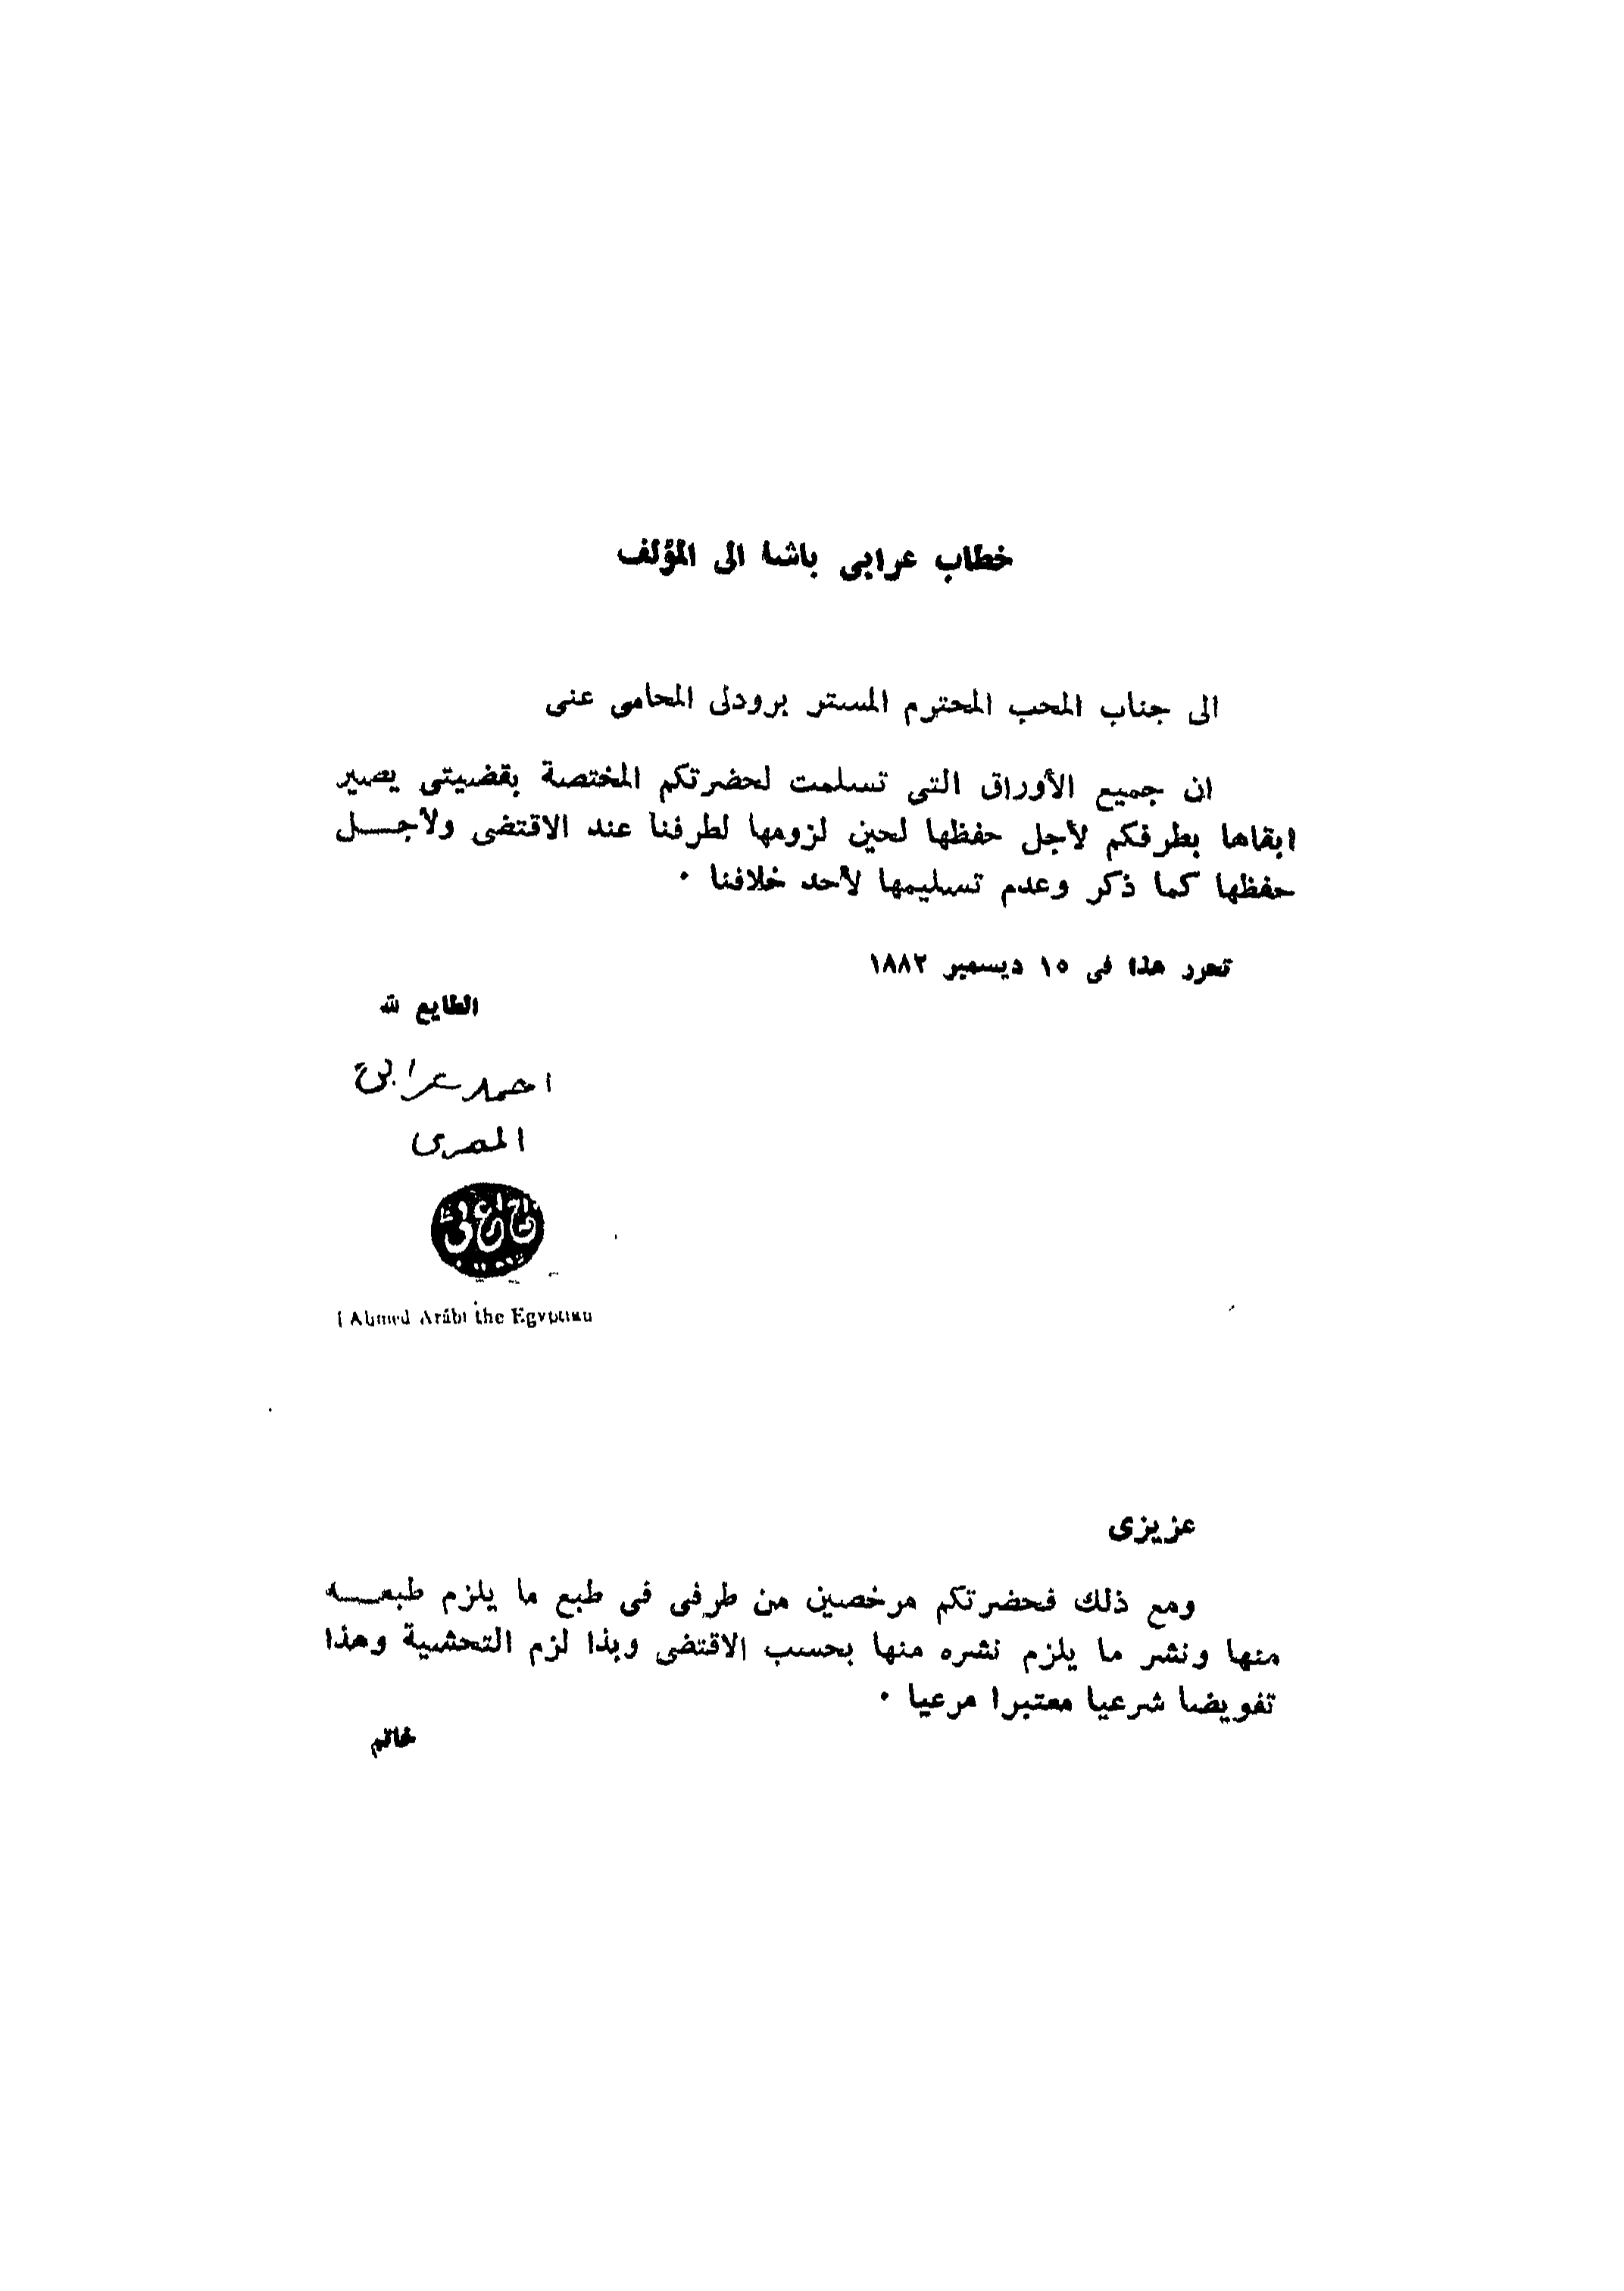 خطاب عرابى باشا الى المؤلف
الى جناب المحب المحترم المستر برودلى المحامى عنى
ان جميع الأوراق التى تسلمت لحضرتكم المختصة بقضيتى يصير
ابقاها بطرفكم لأجل حفظها لحين لزومها لطرفنا عند الاقتضى ولأجل
حفظها كما ذكر وعدم تسليمها لأحد خلافنا .
تحرر هذا فى ١٥ ديسمبر ١٨٨٢
الطايع لله
احمد عرابى
المصرى
Ahmed Arábi the Egyptian
عزيزى
ومع ذلك فحضرتكم مرخصين من طرفى فى طبع ما يلزم طبعه
منها ونشر ما يلزم نشره منها بحسب الاقتضى وبذا لزم التحشية وهذا
تفويضا شرعيا معتبرا مرعيا .
خاتم